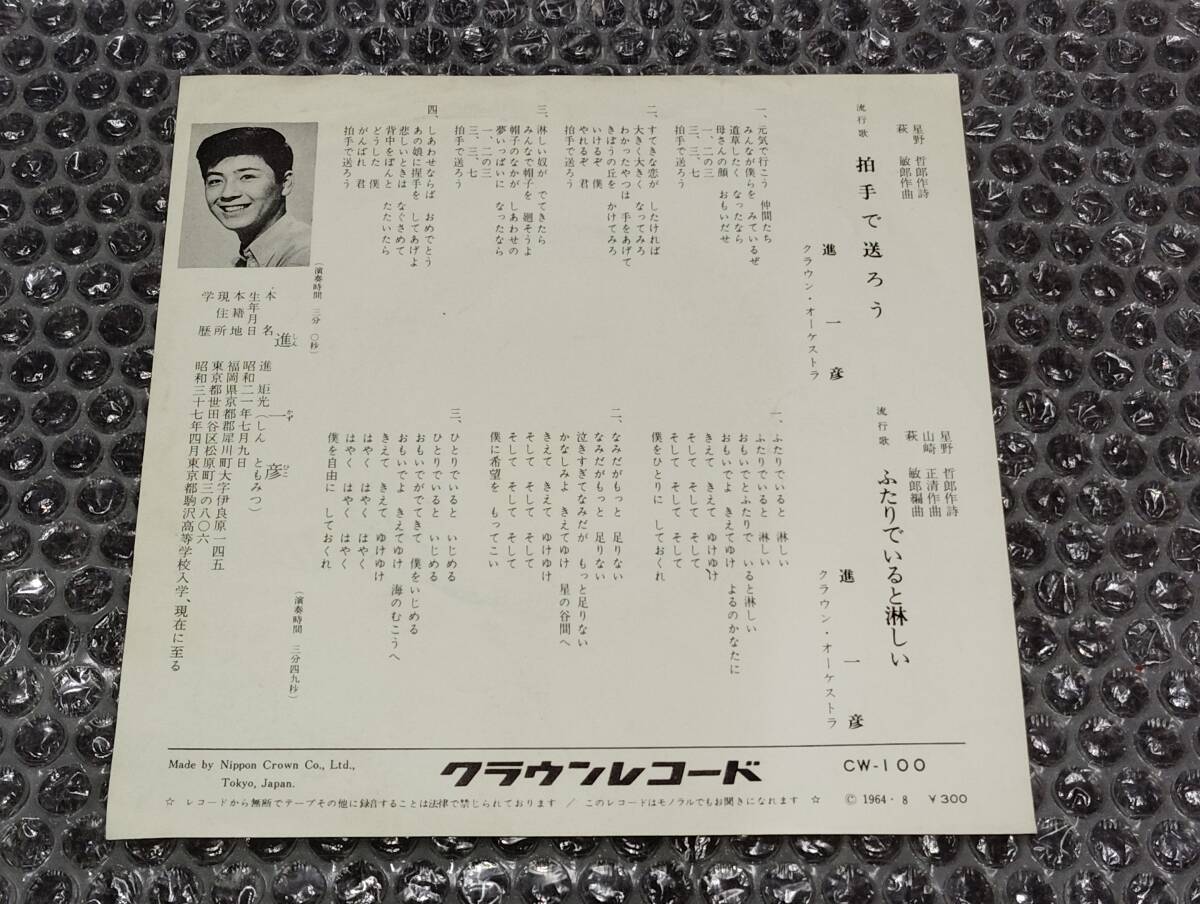 流行歌
拍手で送ろう
星野 哲郎作詩
萩 敏郎作曲
進 一彦
クラウン・オーケストラ
一、元気で行こう 仲間たち
みんなが僕らを みているぜ
道草したく なったなら
母さんの顔 おもいだせ
一、二の三
三、三、七
拍手で送ろう
二、すてきな恋が したければ
大きく大きく なってみろ
わかったやつは 手をあげて
きぼうの丘を かけてみろ
いけるぞ 僕
やれるぞ 君
拍手で送ろう
三、淋しい奴が でてきたら
みんなで帽子を 廻そうよ
帽子のなかが しあわせの
夢いっぱいに なったなら
一、二の三
三、三、七
拍手で送ろう
四、しあわせならば おめでとう
あの娘に握手を してあげよ
悲しいときは なぐさめて
背中をぽんと たたいたら
どうした 僕
がんばれ 君
拍手で送ろう
(演奏時間 三分 〇秒)
流行歌
ふたりでいると淋しい
星野 哲郎作詩
山崎 正清作曲
萩 敏郎編曲
進 一彦
クラウン・オーケストラ
一、ふたりでいると 淋しい
ふたりでいると 淋しい
おもいでとふたりで いると淋しい
おもいでよ きえてゆけ よるのかなたに
きえて きえて ゆけゆけ
そして そして そして
そして そして そして
僕をひとりに しておくれ
二、なみだがもっと 足りない
なみだがもっと 足りない
泣きすぎてなみだが もっと足りない
かなしみよ きえてゆけ 星の谷間へ
きえて きえて ゆけゆけ
そして そして そして
そして そして そして
僕に希望を もってこい
三、ひとりでいると いじめる
ひとりでいると いじめる
おもいでがでてきて 僕をいじめる
おもいでよ きえてゆけ 海のむこうへ
きえて きえて ゆけゆけ
はやく はやく はやく
はやく はやく はやく
僕を自由に しておくれ
(演奏時間 三分四九秒)
進 一彦
しん かず ひこ
本名 進 矩光(しん ともみつ)
生年月日 昭和二一年七月九日
本籍地 福岡県京都郡犀川町大字伊良原一四五
現住所 東京都世田谷区松原町三の八〇六
学歴 昭和三十七年四月東京都駒沢高等学校入学、現在に至る
Made by Nippon Crown Co., Ltd.,
Tokyo, Japan.
クラウンレコード
CW-100
☆ レコードから無断でテープその他に録音することは法律で禁じられております / このレコードはモノラルでもお聞きになれます ☆
© 1964・8 ¥300